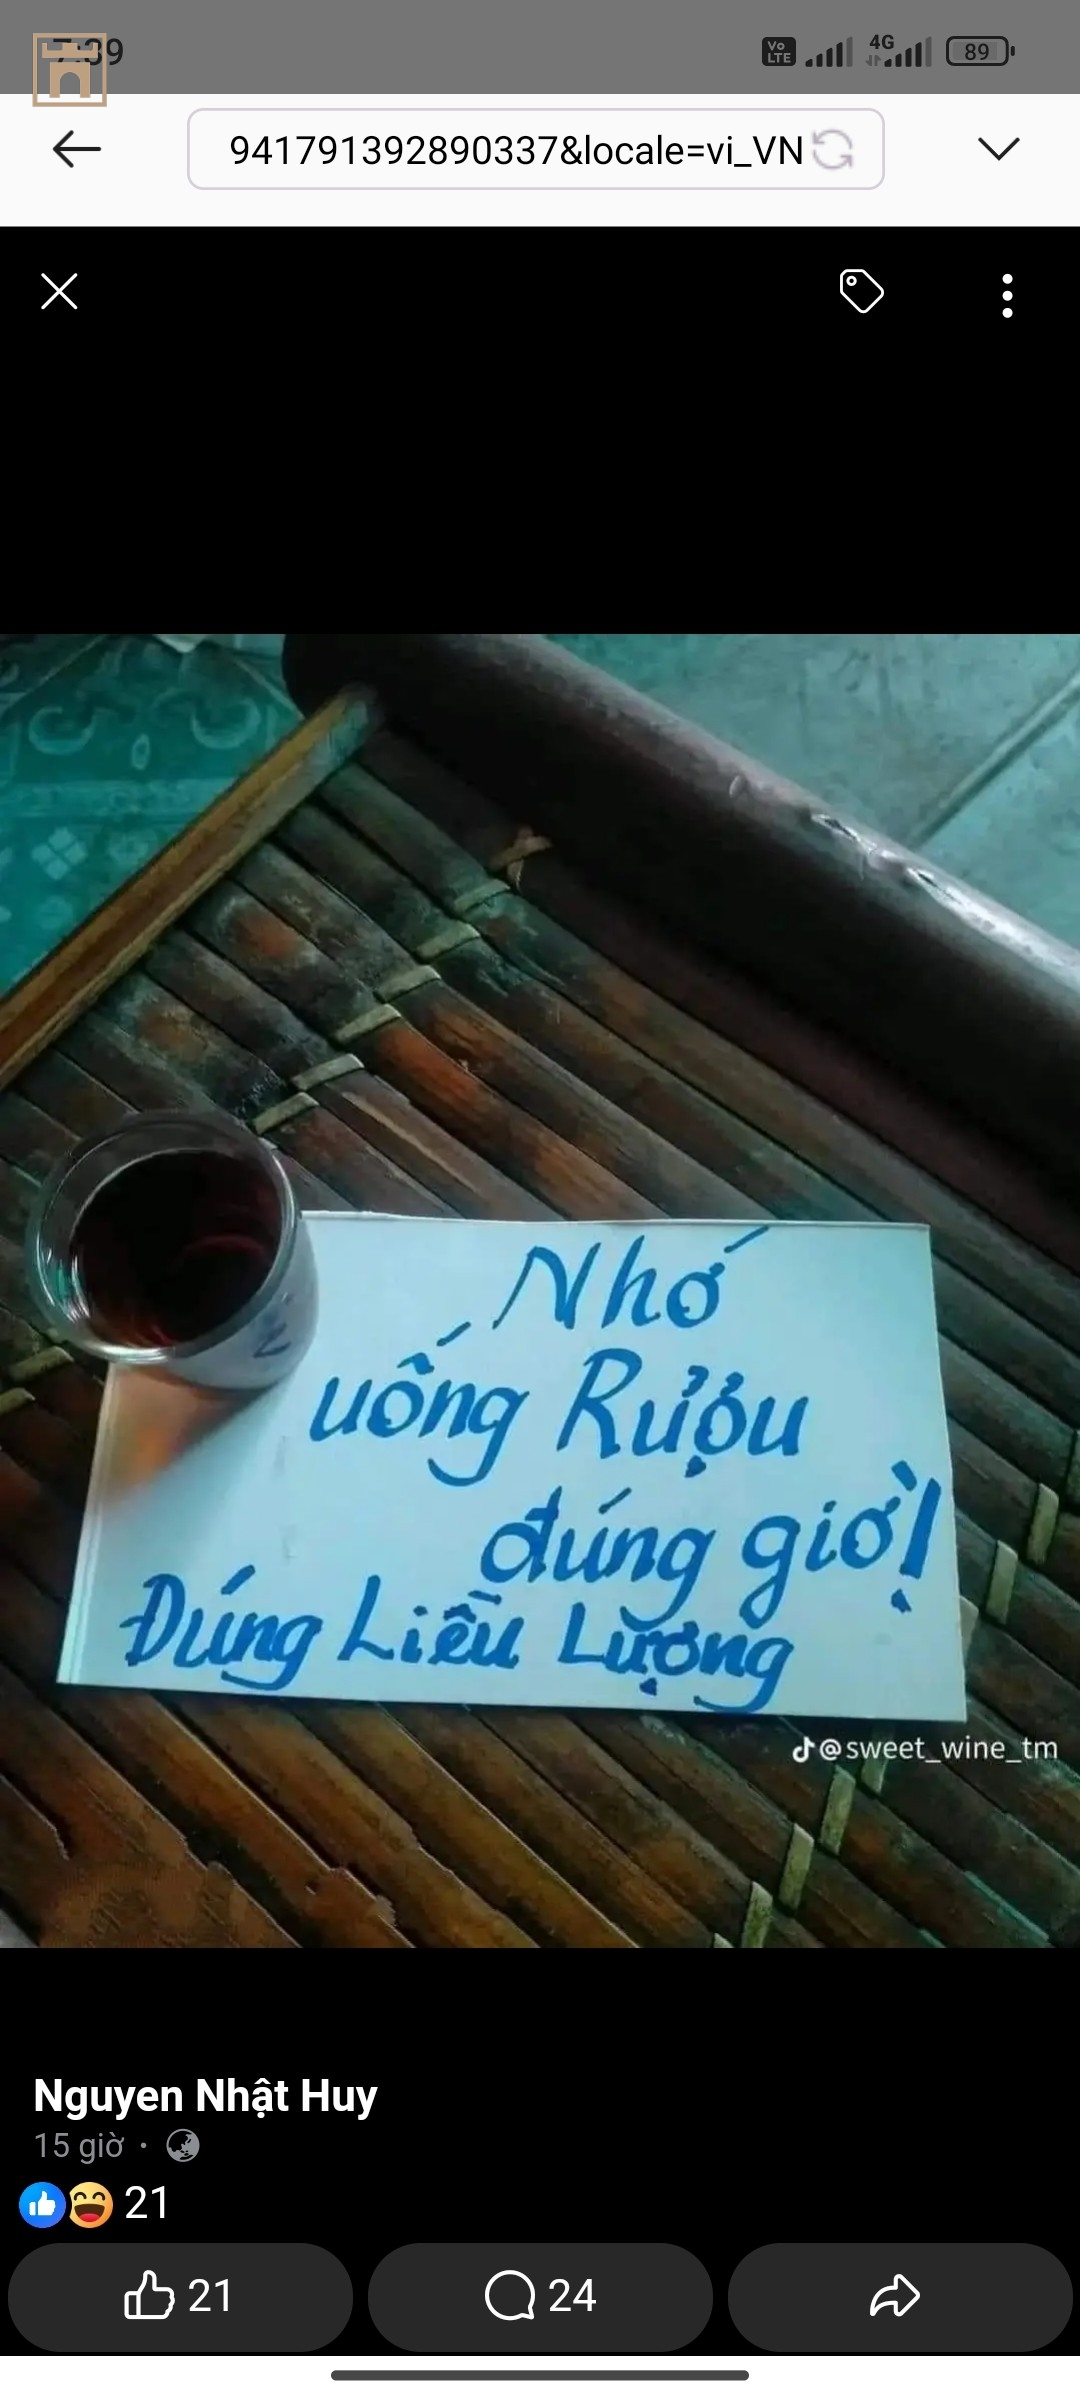 7:39
Vo LTE 4G 89
941791392890337&locale=vi_VN
Nhớ
uống Rượu
đúng giờ!
Đúng Liều Lượng
@sweet_wine_tm
Nguyen Nhật Huy
15 giờ ·
21
21 24